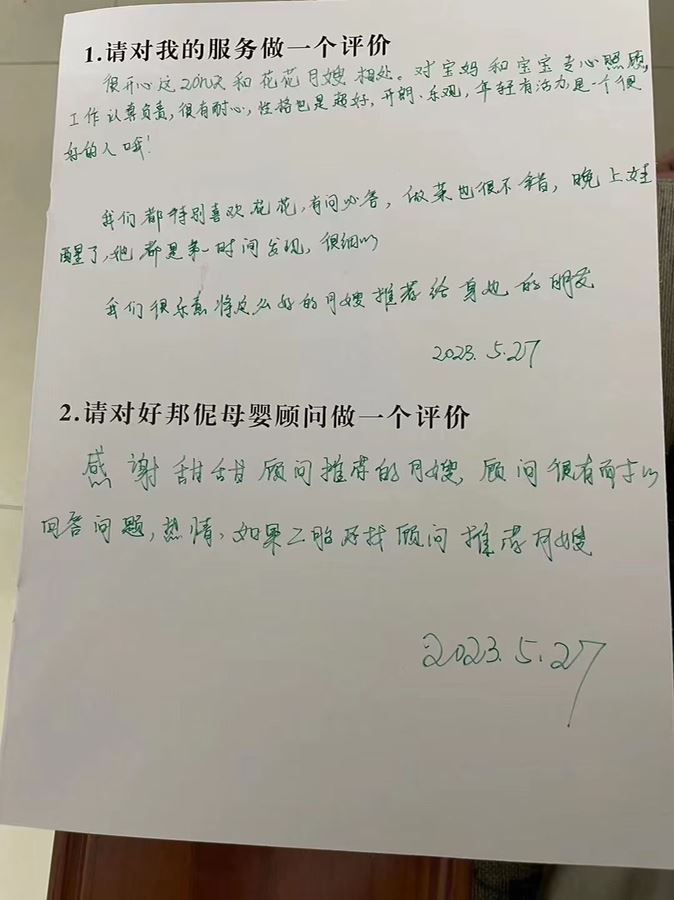 1.请对我的服务做一个评价
很开心这20几天和花花月嫂相处。对宝妈和宝宝专心照顾,
工作认真负责,很有耐心,性格也是超好,开朗、乐观,年轻有活力,是一个很
好的人哦!
我们都特别喜欢花花,有问必答,做菜也很不错,晚上娃
醒了,她都是第一时间发现,很细心
我们很乐意将这么好的月嫂推荐给身边的朋友
2023.5.27
2.请对好邦伲母婴顾问做一个评价
感谢甜甜顾问推荐的月嫂,顾问很有耐心
回答问题,热情,如果二胎还找顾问推荐月嫂
2023.5.27